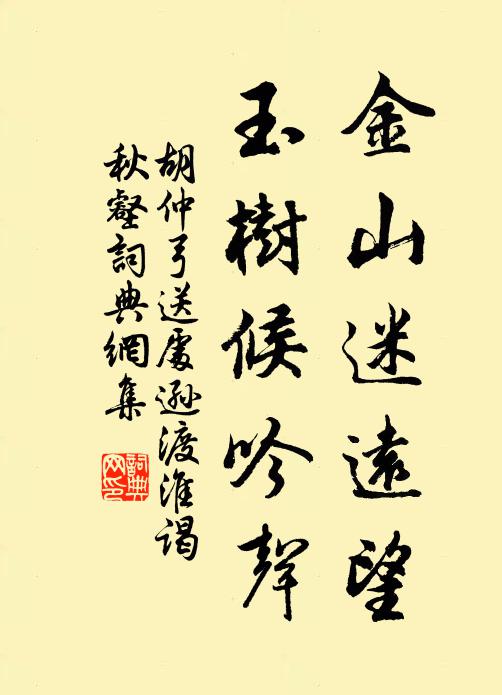 金山迷遠望
玉樹候吟聲
胡仲弓送處遜渡淮謁
秋壑詞典網集
詞典
网印